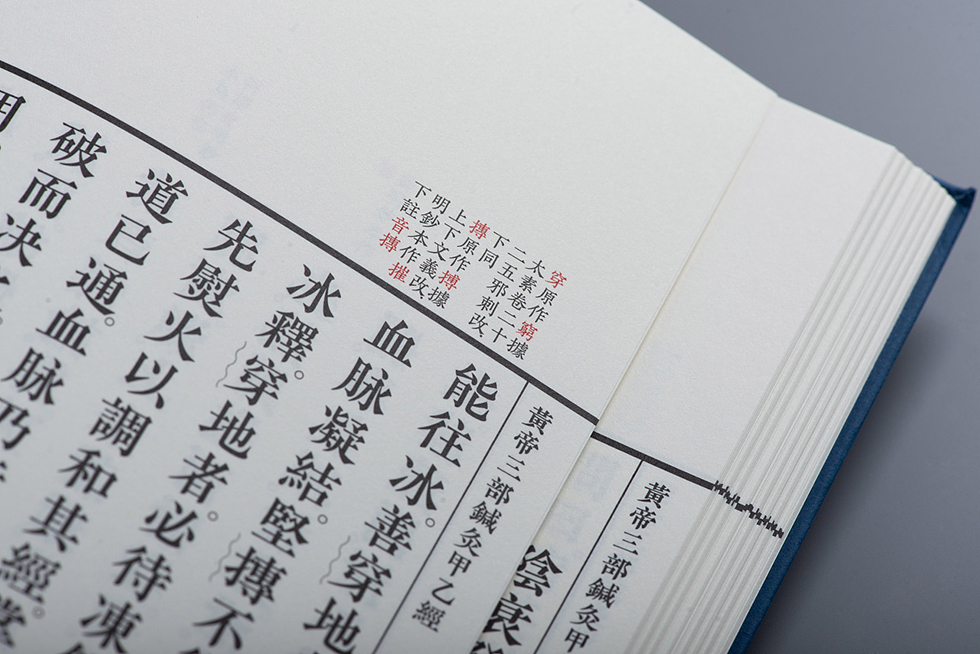 黃帝三部鍼灸甲
陰衰
黃帝三部鍼灸甲乙經
穿原作窮據
太素卷二十
二五邪刺改
下同
摶原作搏據
上下文義改
明鈔本作摧
下註音摶
能往冰。善穿地
血脉凝結。堅摶不
冰釋。穿地者。必待凍
先熨火以調和其經。掌
道已通。血脉乃
破而決
用